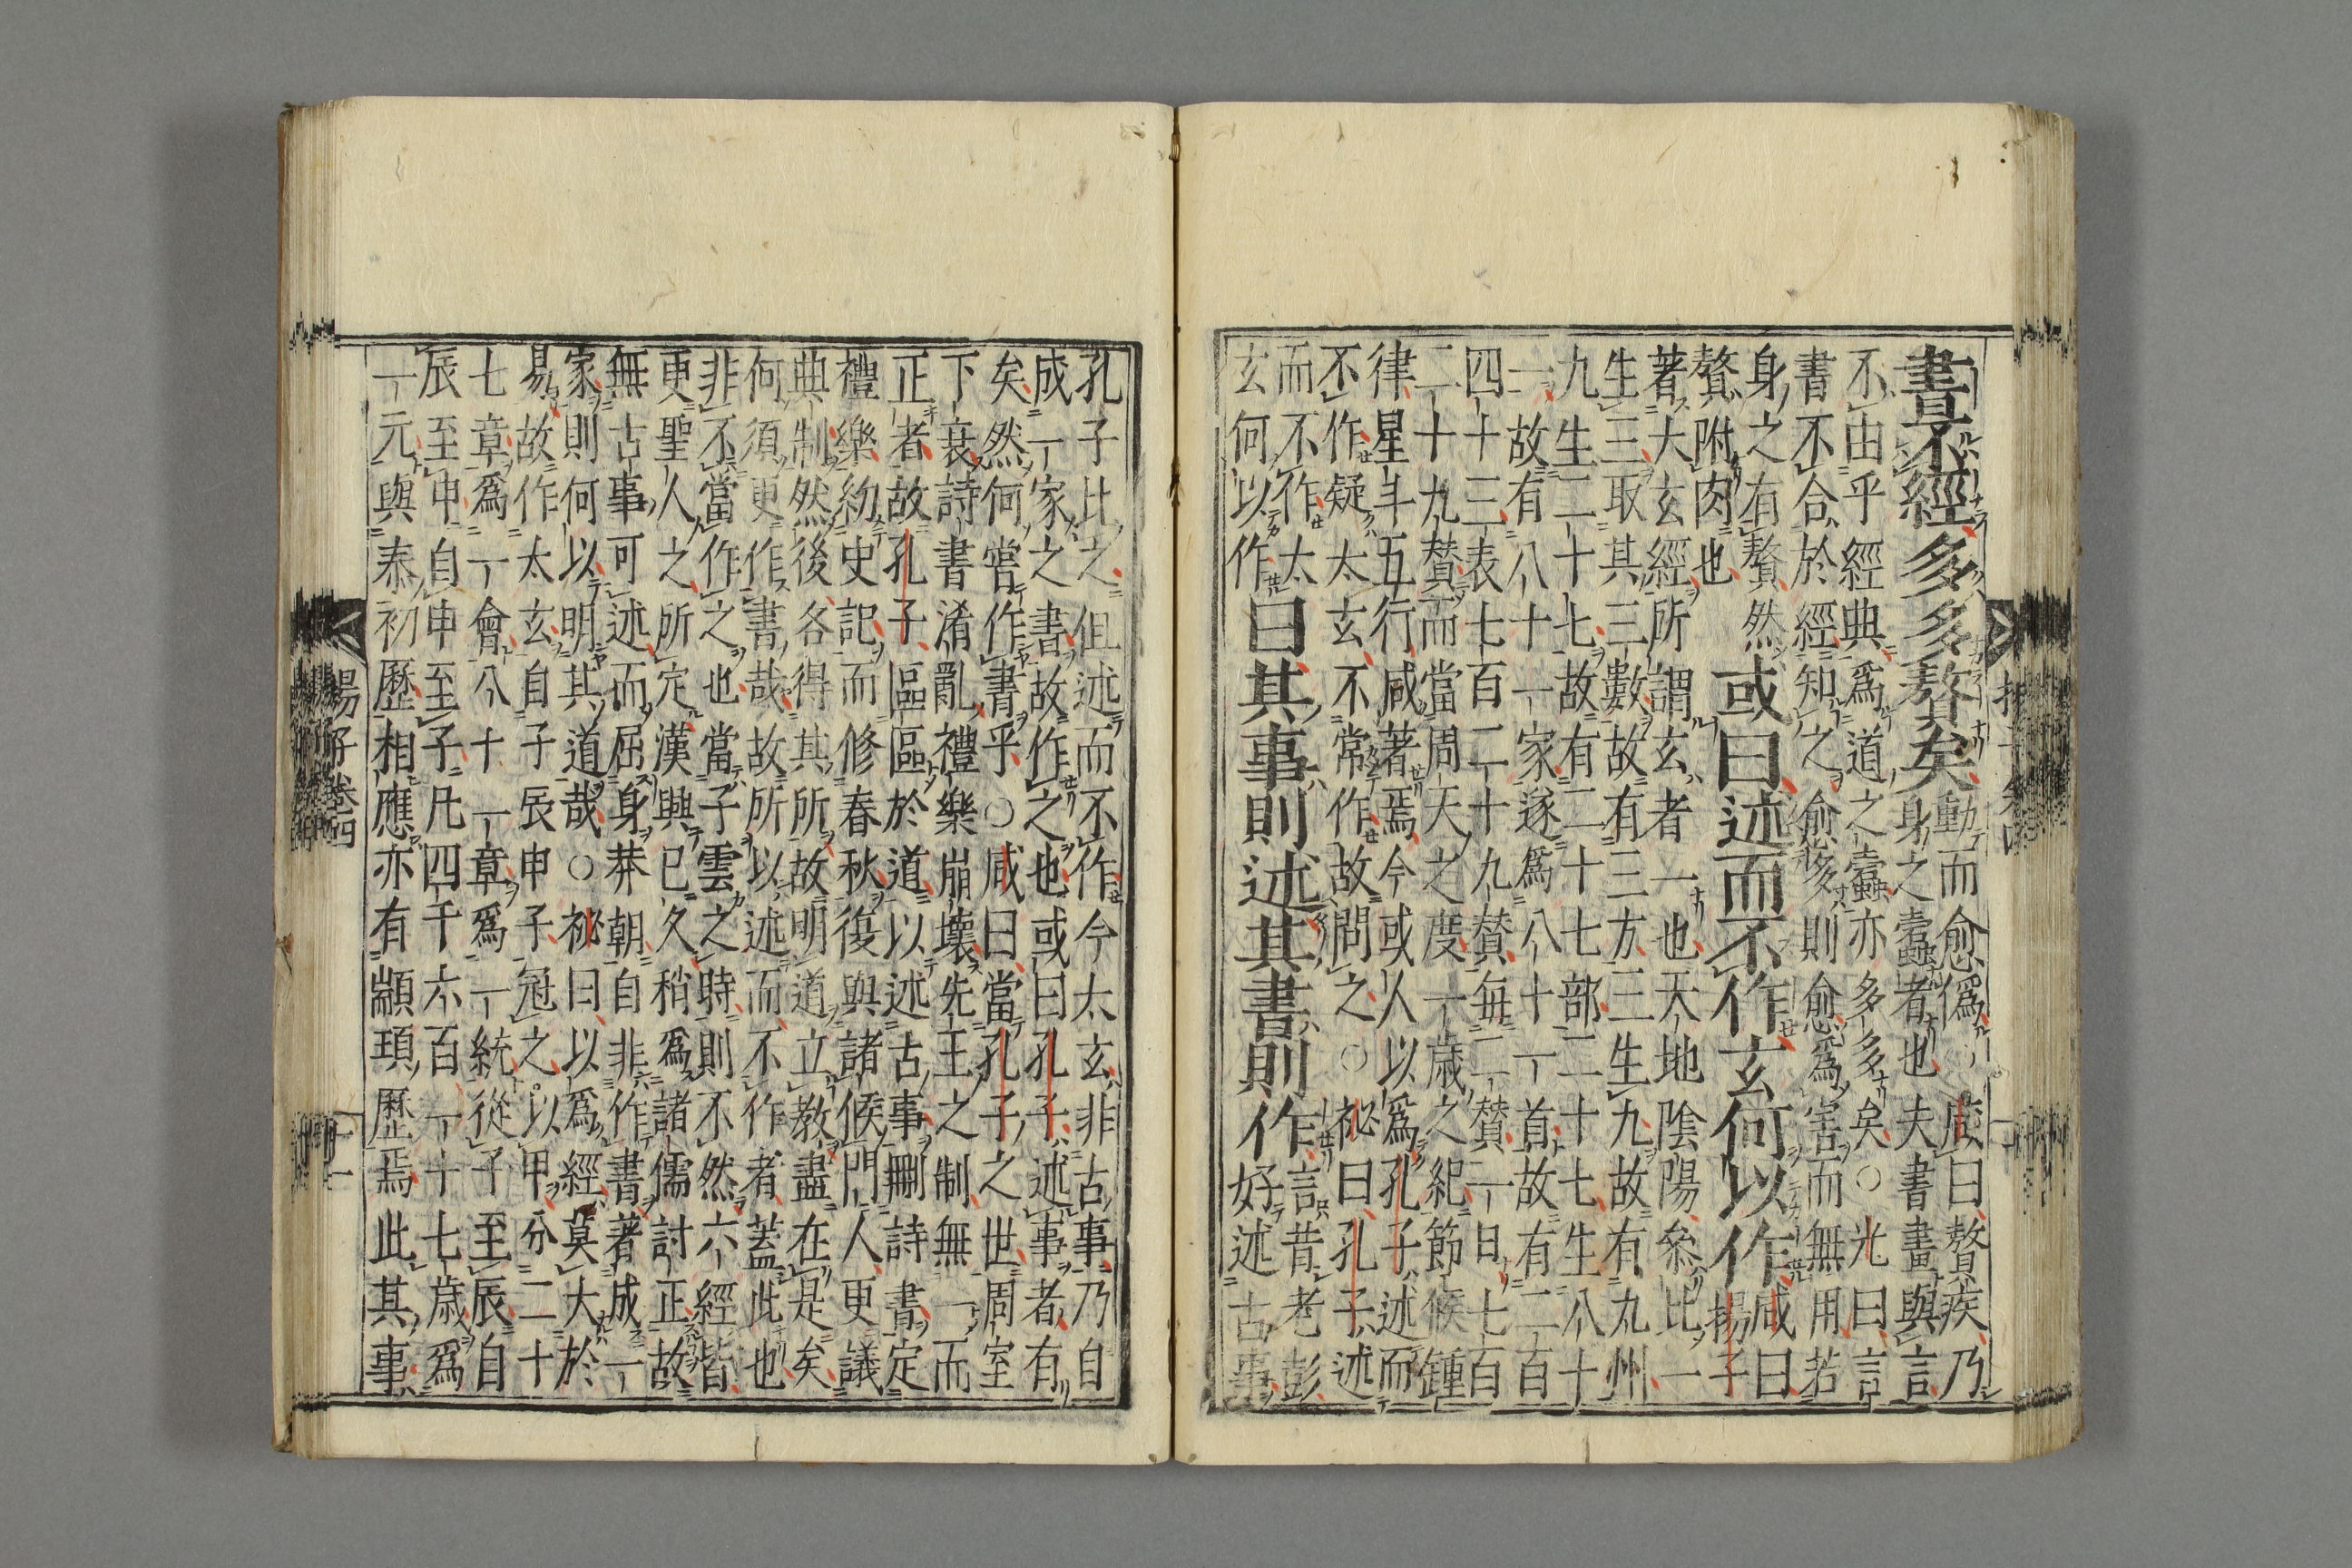 書不經多多贅矣
動而愈僞 咸曰贅疾乃
身之蠧者也夫書畫與言
不由乎經典爲道之蠧亦多多矣○光曰言
書不合於經知之愈多則愈爲害而無用若
身之有贅然
贅附肉也
或曰述而不作玄何以作
咸曰
揚子
著大玄經所謂玄者一也天地陰陽叅比一
生三取其三數故有三方三生九故有九州
九生二十七故有二十七部二十七生八十
一故有八十一家遂爲八十一首故有二百
四十三表七百二十九賛每二賛一日七百
二十九賛而當周天之度一歲之紀節候鍾
律星斗五行咸著焉今或人以爲孔子述而
不作疑太玄不常作故問之○祕曰孔子述
而不作太
玄何以作
曰其事則述其書則作
言昔老彭
好述古事
孔子比之但述而不作今太玄非古事乃自
成一家之書故作之也或曰孔子述事者有
矣然何嘗作書乎○咸曰當孔子之世周室
下衰詩書淆亂禮樂崩壞先王之制無一而
正者故孔子區區於道以述古事刪詩書定
禮樂約史記而修春秋復與諸候門人更議
典制然後各得其所故明道立教盡在是矣
何須更作書哉故所以述而不作者蓋此也
非不當作之也當子雲之時則不然六經皆
更聖人之所定漢興已久稍爲諸儒討正故
無古事可述而屈身莽朝自非作書著成一
家則何以明其道哉○祕曰以爲經莫大於
易故作太玄自子辰申子冠之以甲分二十
七章爲一會八十一章爲一統從子至辰自
辰至申自申至子凡四千六百一十七歲爲
一元與泰初歷相應亦有顓頊歷焉此其事
揚子卷四
十一